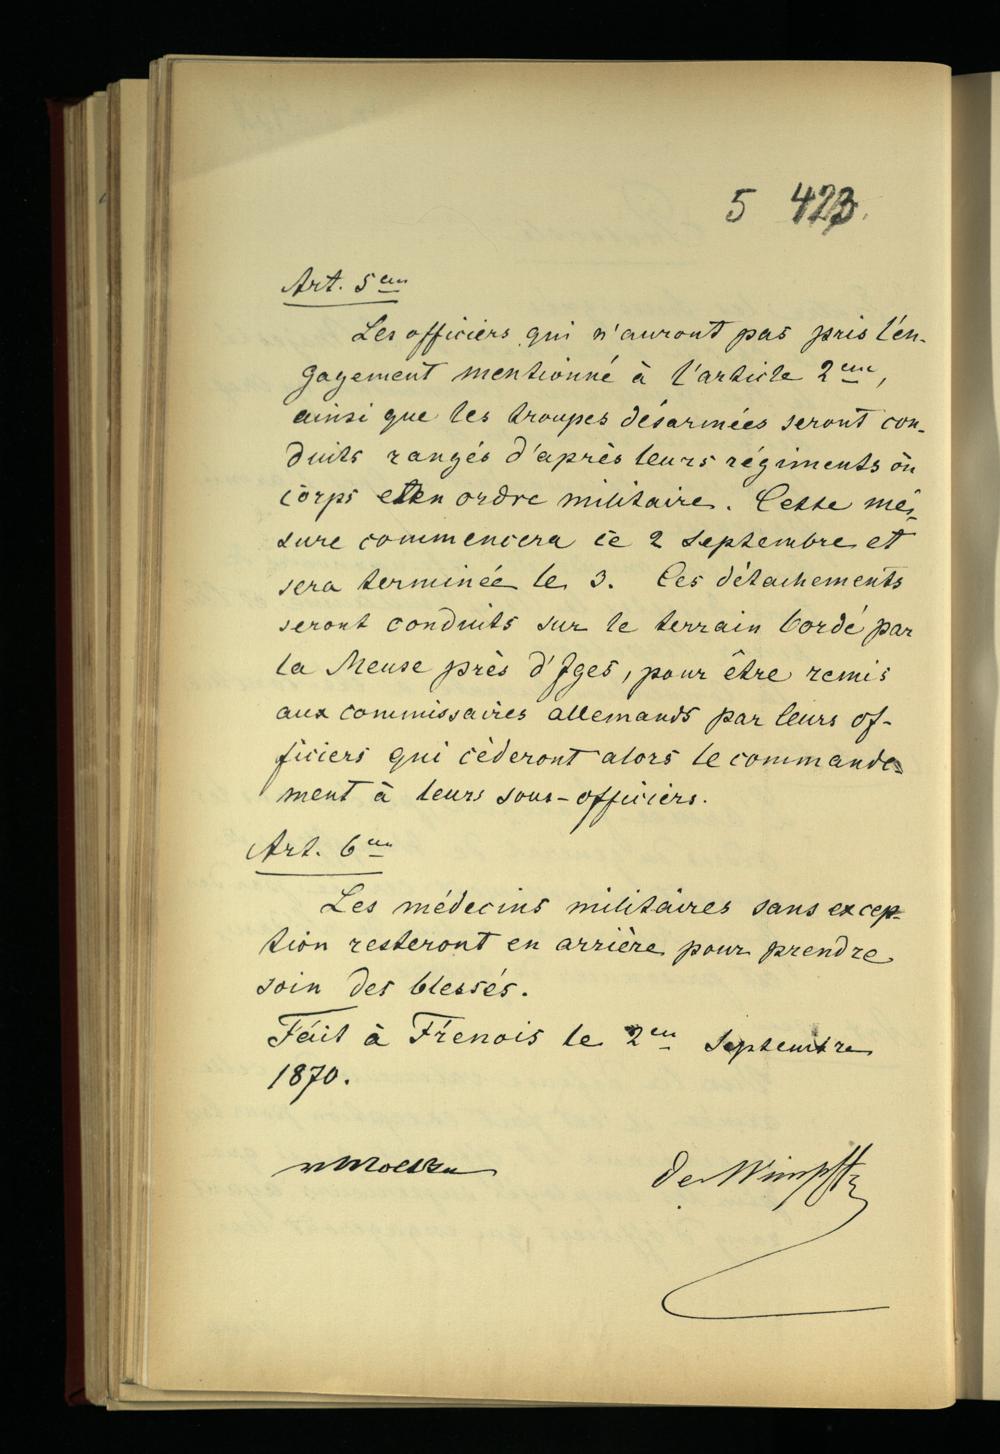 5 423.
Art. 5em
Les officiers qui n'auront pas pris l'en-
gagement mentionné à l'article 2em,
ainsi que les troupes désarmées seront con-
duits rangés d'après leurs régiments ou
corps et en ordre militaire. Cette mé-
sure commencera le 2 Septembre et
sera terminée le 3. Ces détachements
seront conduits sur le terrain bordé par
la Meuse près d'Iges, pour être remis
aux commissaires allemands par leurs of-
ficiers qui cèderont alors le commande
ment à leurs sous-officiers.
Art. 6em
Les médecins militaires sans excep-
tion resteront en arrière pour prendre
soin des blessés.
Fait à Frénois le 2em Septembre
1870.
v Moltke de Wimpffen